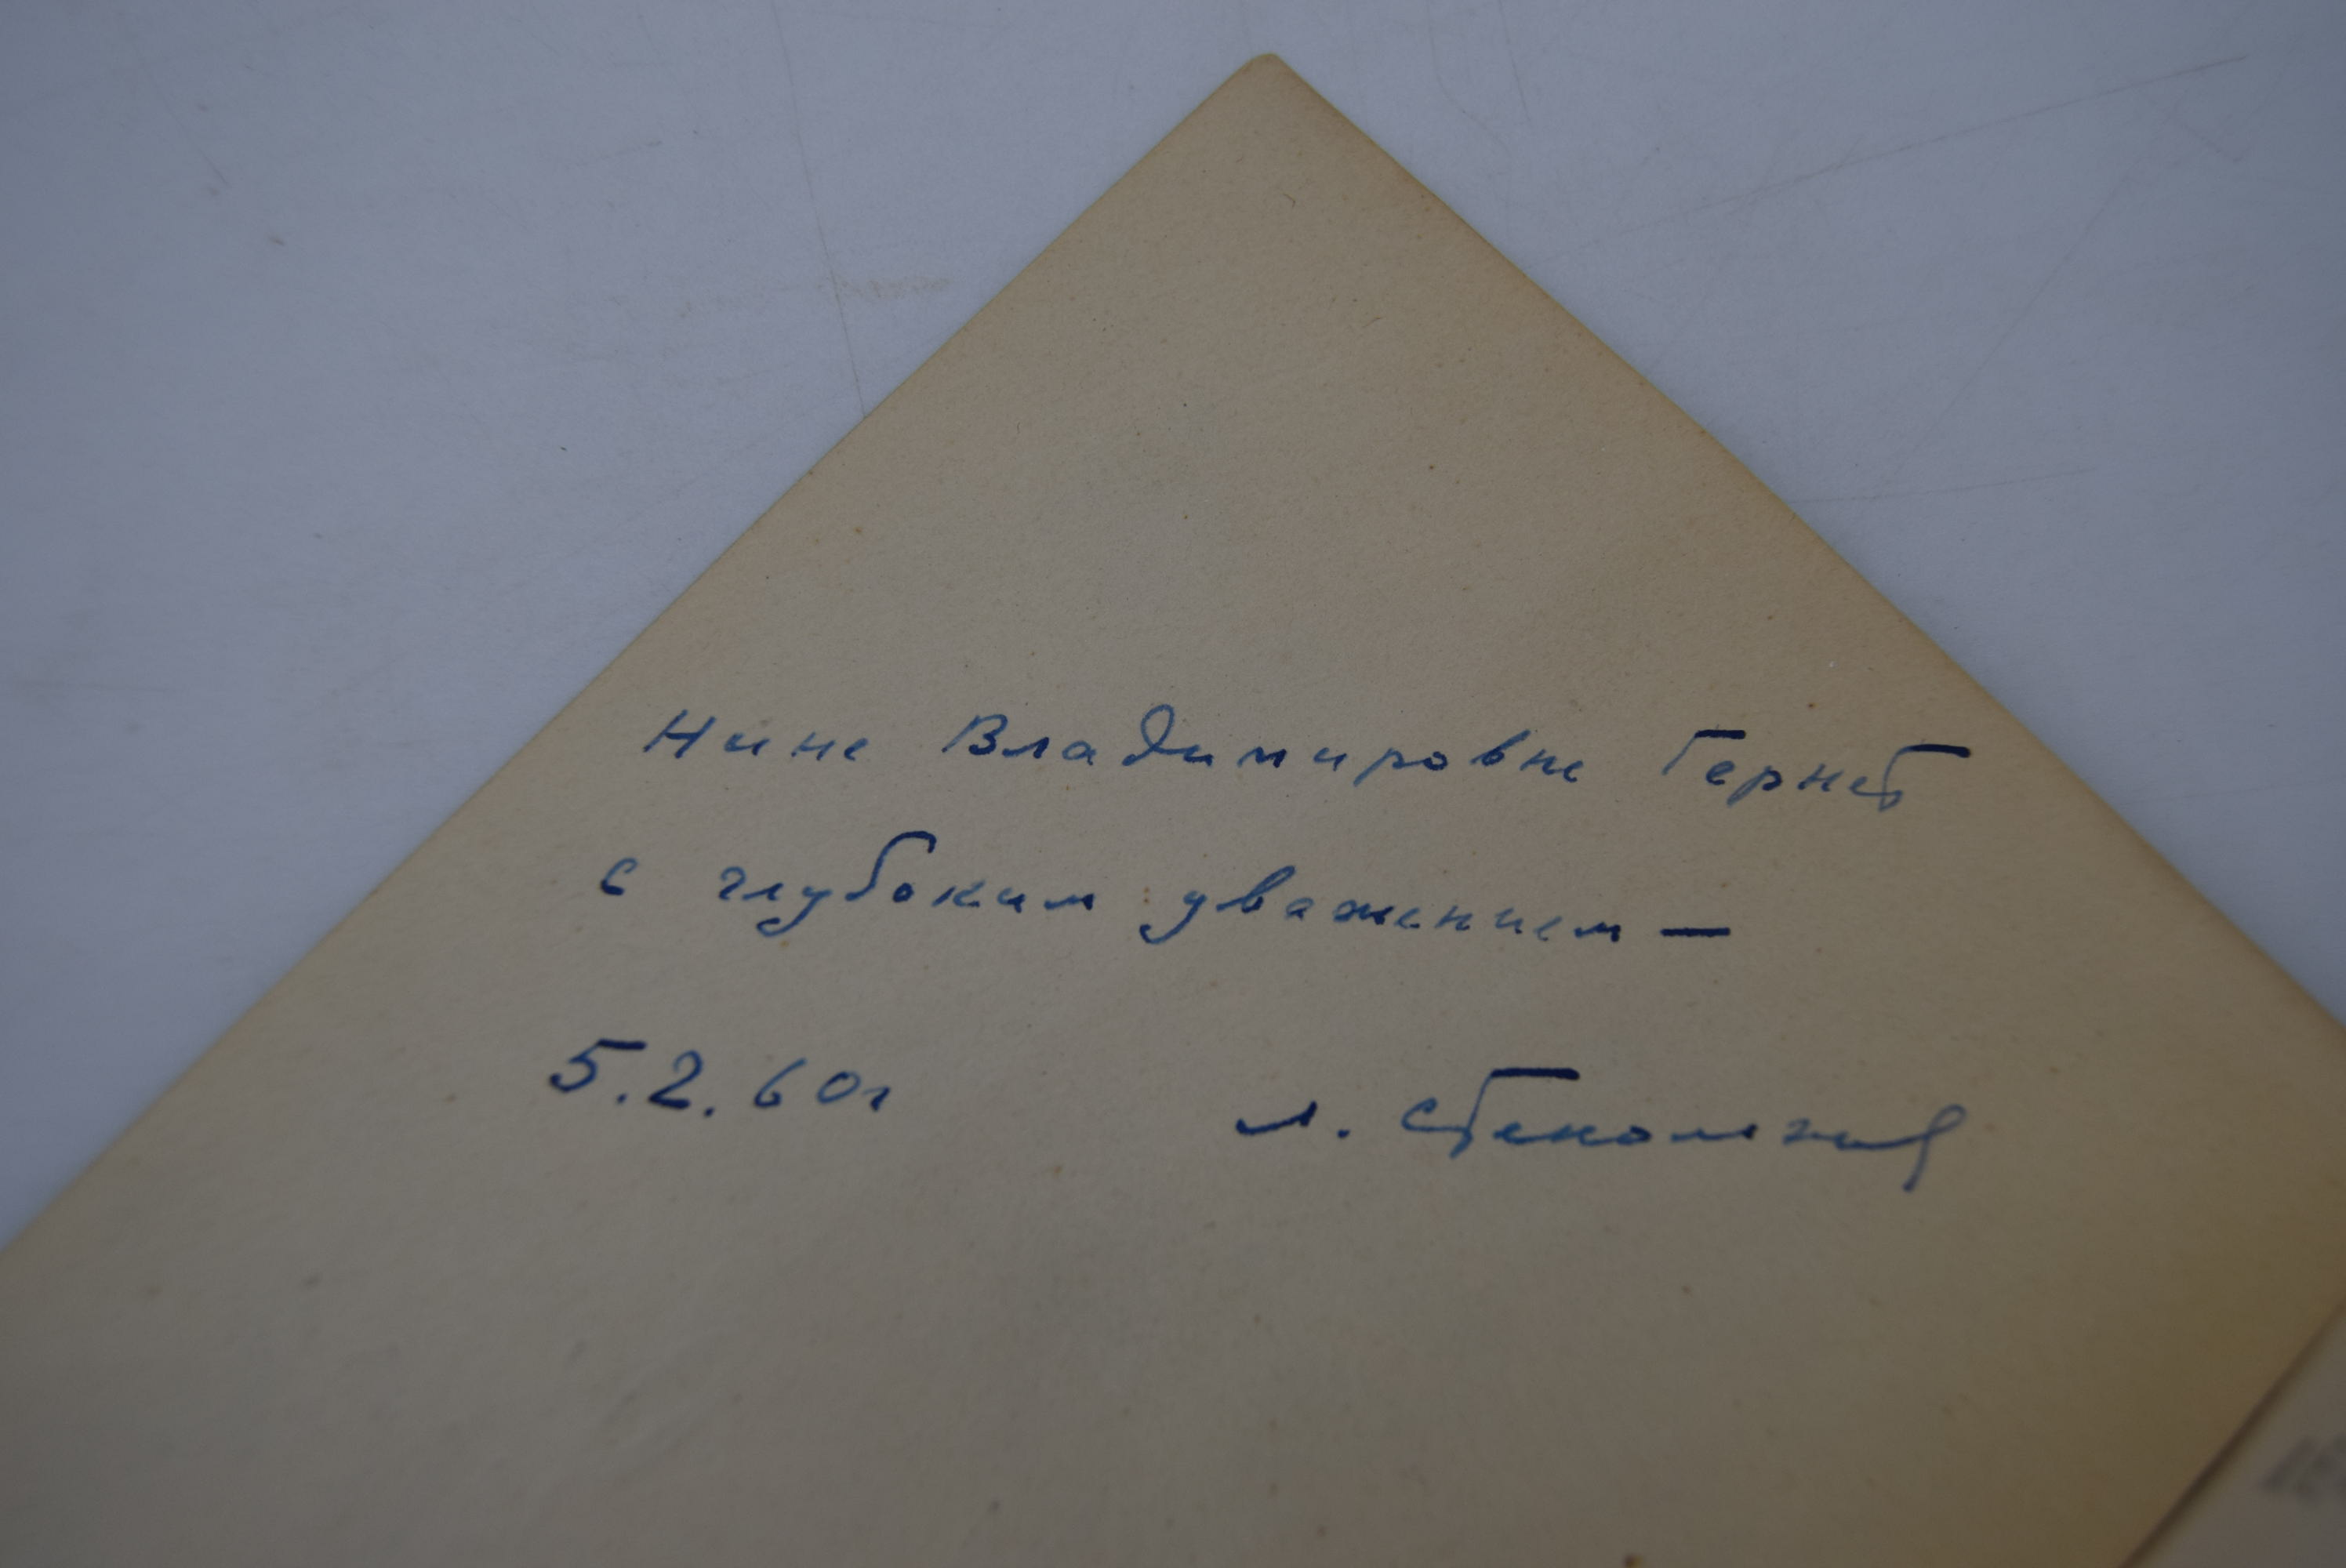 Нине Владимировне Гернет
с глубоким уважением —
5.2.60г
Л. Стекольников